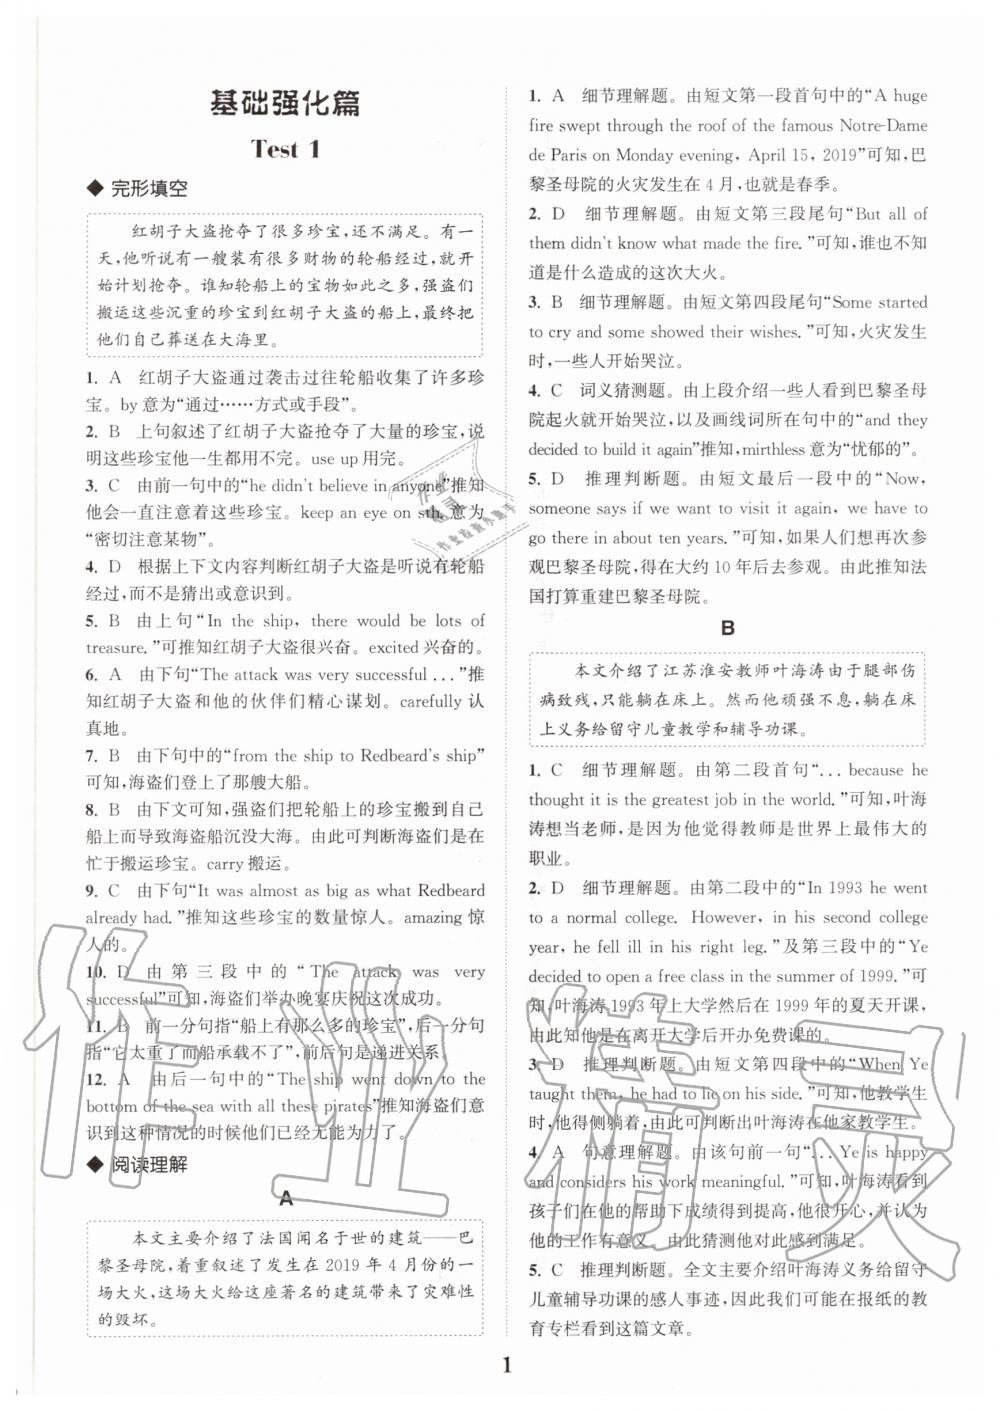 基础强化篇
Test 1
◆ 完形填空
红胡子大盗抢夺了很多珍宝,还不满足。有一
天,他听说有一艘装有很多财物的轮船经过,就开
始计划抢夺。谁知轮船上的宝物如此之多,强盗们
搬运这些沉重的珍宝到红胡子大盗的船上,最终把
他们自己葬送在大海里。
1. A 红胡子大盗通过袭击过往轮船收集了许多珍
宝。by意为“通过……方式或手段”。
2. B 上句叙述了红胡子大盗抢夺了大量的珍宝,说
明这些珍宝他一生都用不完。use up用完。
3. C 由前一句中的“he didn't believe in anyone”推知
他会一直注意着这些珍宝。keep an eye on sth.意为
“密切注意某物”。
4. D 根据上下文内容判断红胡子大盗是听说有轮船
经过,而不是猜出或意识到。
5. B 由上句“In the ship, there would be lots of
treasure.”可推知红胡子大盗很兴奋。excited兴奋的。
6. A 由下句“The attack was very successful ...”推
知红胡子大盗和他的伙伴们精心谋划。carefully认
真地。
7. B 由下句中的“from the ship to Redbeard's ship”
可知,海盗们登上了那艘大船。
8. B 由下文可知,强盗们把轮船上的珍宝搬到自己
船上而导致海盗船沉没大海。由此可判断海盗们是在
忙于搬运珍宝。carry搬运。
9. C 由下句“It was almost as big as what Redbeard
already had.”推知这些珍宝的数量惊人。amazing惊
人的。
10. D 由第三段中的“The attack was very
successful”可知,海盗们举办晚宴庆祝这次成功。
11. B 前一分句指“船上有那么多的珍宝”,后一分句
指“它太重了而船承载不了”,前后句是递进关系。
12. A 由后一句中的“The ship went down to the
bottom of the sea with all these pirates”推知海盗们意
识到这种情况的时候他们已经无能为力了。
◆ 阅读理解
A
本文主要介绍了法国闻名于世的建筑——巴
黎圣母院,着重叙述了发生在2019年4月份的一
场大火,这场大火给这座著名的建筑带来了灾难性
的毁坏。
1. A 细节理解题。由短文第一段首句中的“A huge
fire swept through the roof of the famous Notre-Dame
de Paris on Monday evening, April 15, 2019”可知,巴
黎圣母院的火灾发生在4月,也就是春季。
2. D 细节理解题。由短文第三段尾句“But all of
them didn't know what made the fire.”可知,谁也不知
道是什么造成的这次大火。
3. B 细节理解题。由短文第四段尾句“Some started
to cry and some showed their wishes.”可知,火灾发生
时,一些人开始哭泣。
4. C 词义猜测题。由上段介绍一些人看到巴黎圣母
院起火就开始哭泣,以及画线词所在句中的“and they
decided to build it again”推知,mirthless意为“忧郁的”。
5. D 推理判断题。由短文最后一段中的“Now,
someone says if we want to visit it again, we have to
go there in about ten years.”可知,如果人们想再次参
观巴黎圣母院,得在大约10年后去参观。由此推知法
国打算重建巴黎圣母院。
B
本文介绍了江苏淮安教师叶海涛由于腿部伤
病致残,只能躺在床上。然而他顽强不息,躺在床
上义务给留守儿童教学和辅导功课。
1. C 细节理解题。由第二段首句“... because he
thought it is the greatest job in the world.”可知,叶海
涛想当老师,是因为他觉得教师是世界上最伟大的
职业。
2. D 细节理解题。由第二段中的“In 1993 he went
to a normal college. However, in his second college
year, he fell ill in his right leg.”及第三段中的“Ye
decided to open a free class in the summer of 1999.”可
知,叶海涛1993年上大学然后在1999年的夏天开课,
由此知他是在离开大学后开办免费课的。
3. D 推理判断题。由短文第四段中的“When Ye
taught them, he had to lie on his side.”可知,他教学生
时,他得侧躺着,由此可判断出叶海涛在他家教学生。
4. A 句意理解题。由该句前一句“... Ye is happy
and considers his work meaningful.”可知,叶海涛看到
孩子们在他的帮助下成绩得到提高,他很开心,并认为
他的工作有意义。由此猜测他对此感到满足。
5. C 推理判断题。全文主要介绍叶海涛义务给留守
儿童辅导功课的感人事迹,因此我们可能在报纸的教
育专栏看到这篇文章。
1
作业精灵